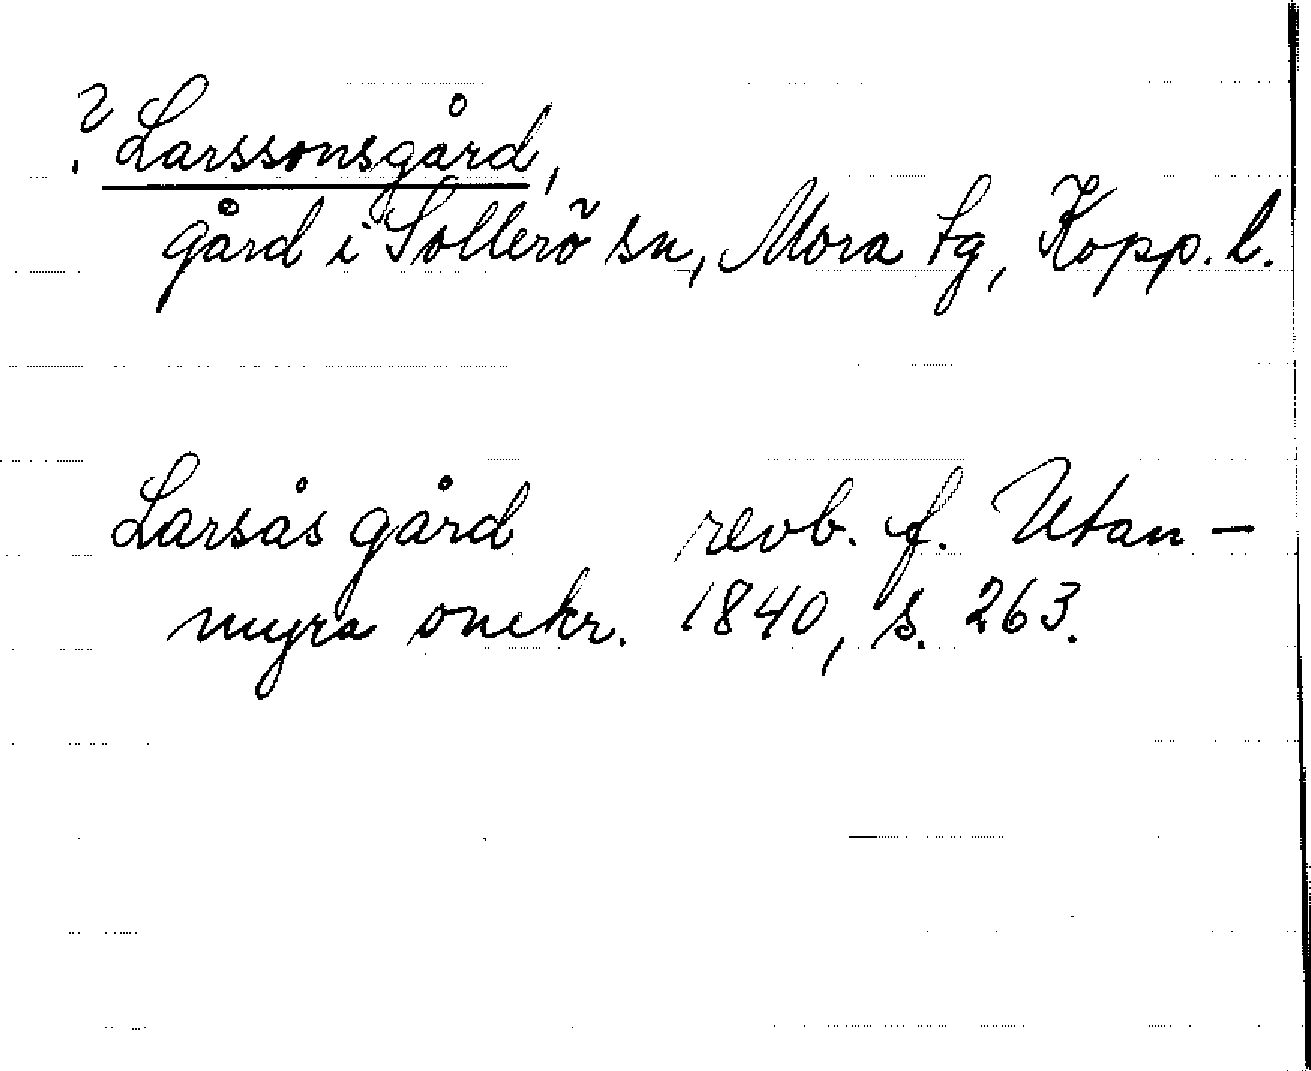 ? Larssonsgård,
gård i Sollerö sn, Mora tg, Kopp. l.
Larsås gård revb. f. Utan-
myra onekr. 1840, s. 263.